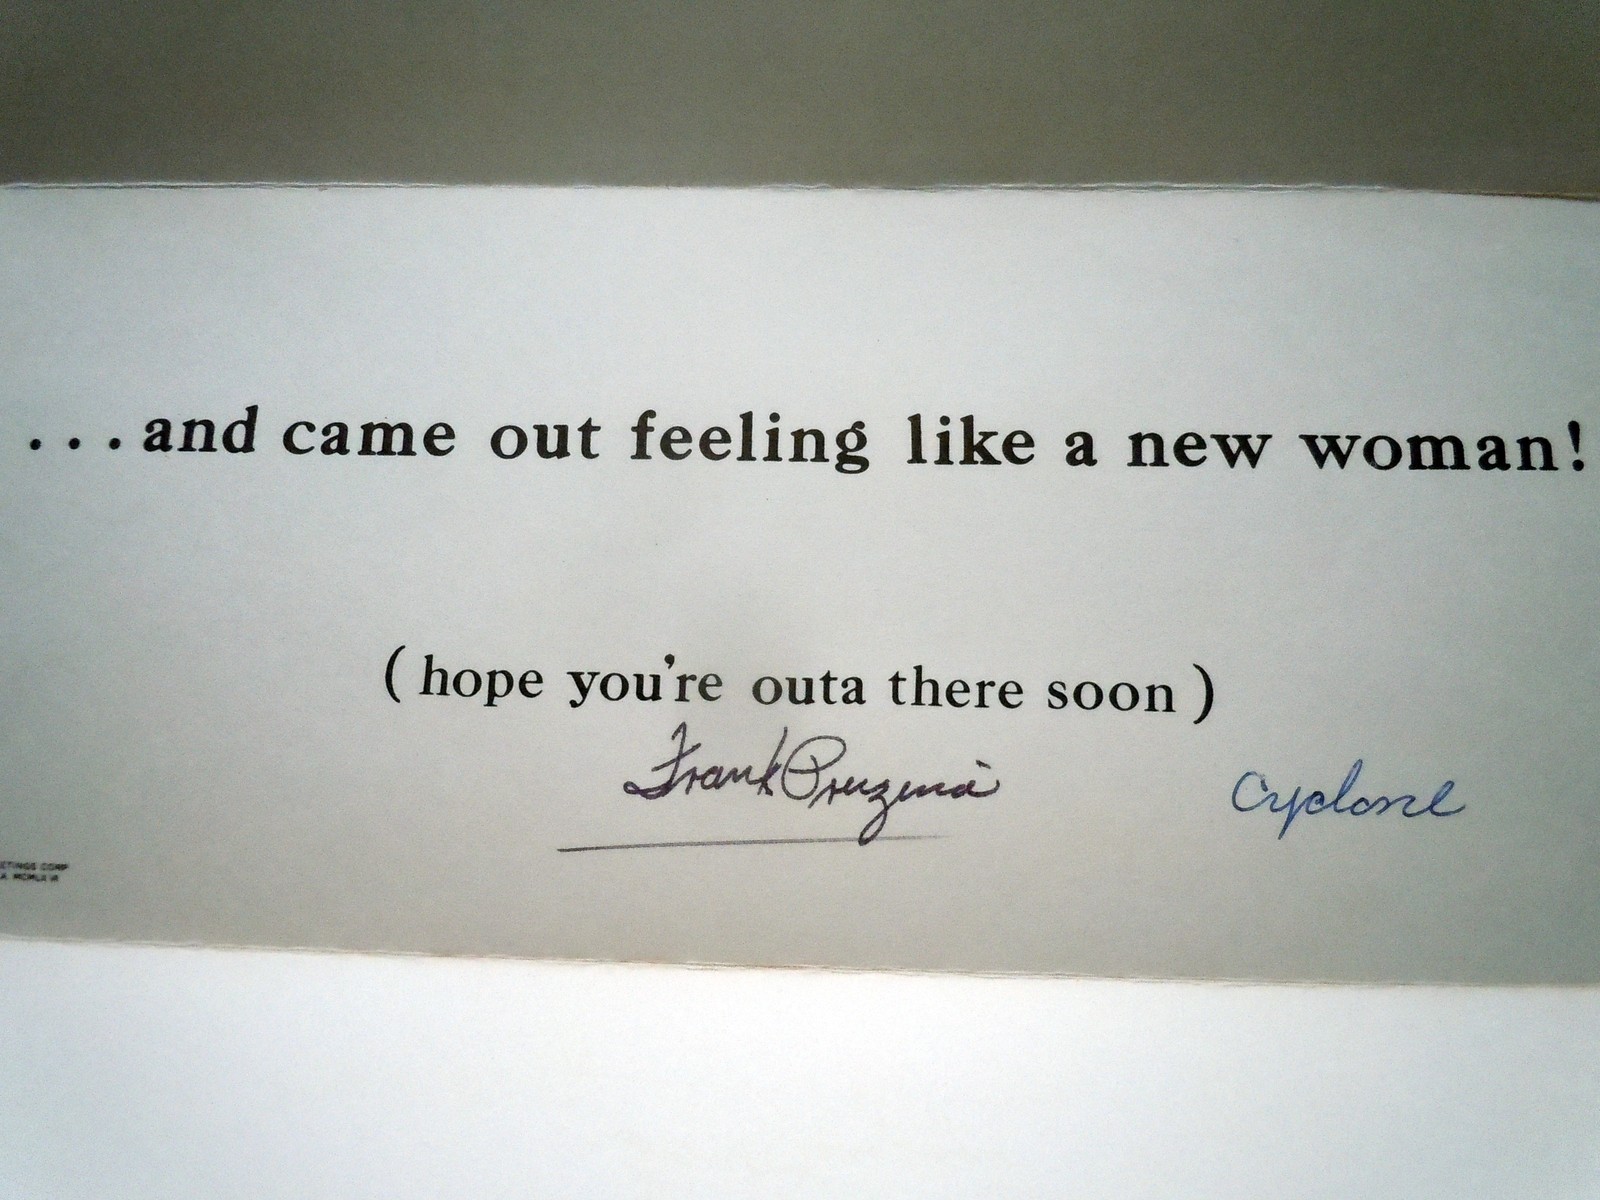 ...and came out feeling like a new woman!
(hope you're outa there soon)
Frank Pruzina
Cyclone
ETINGS CORP